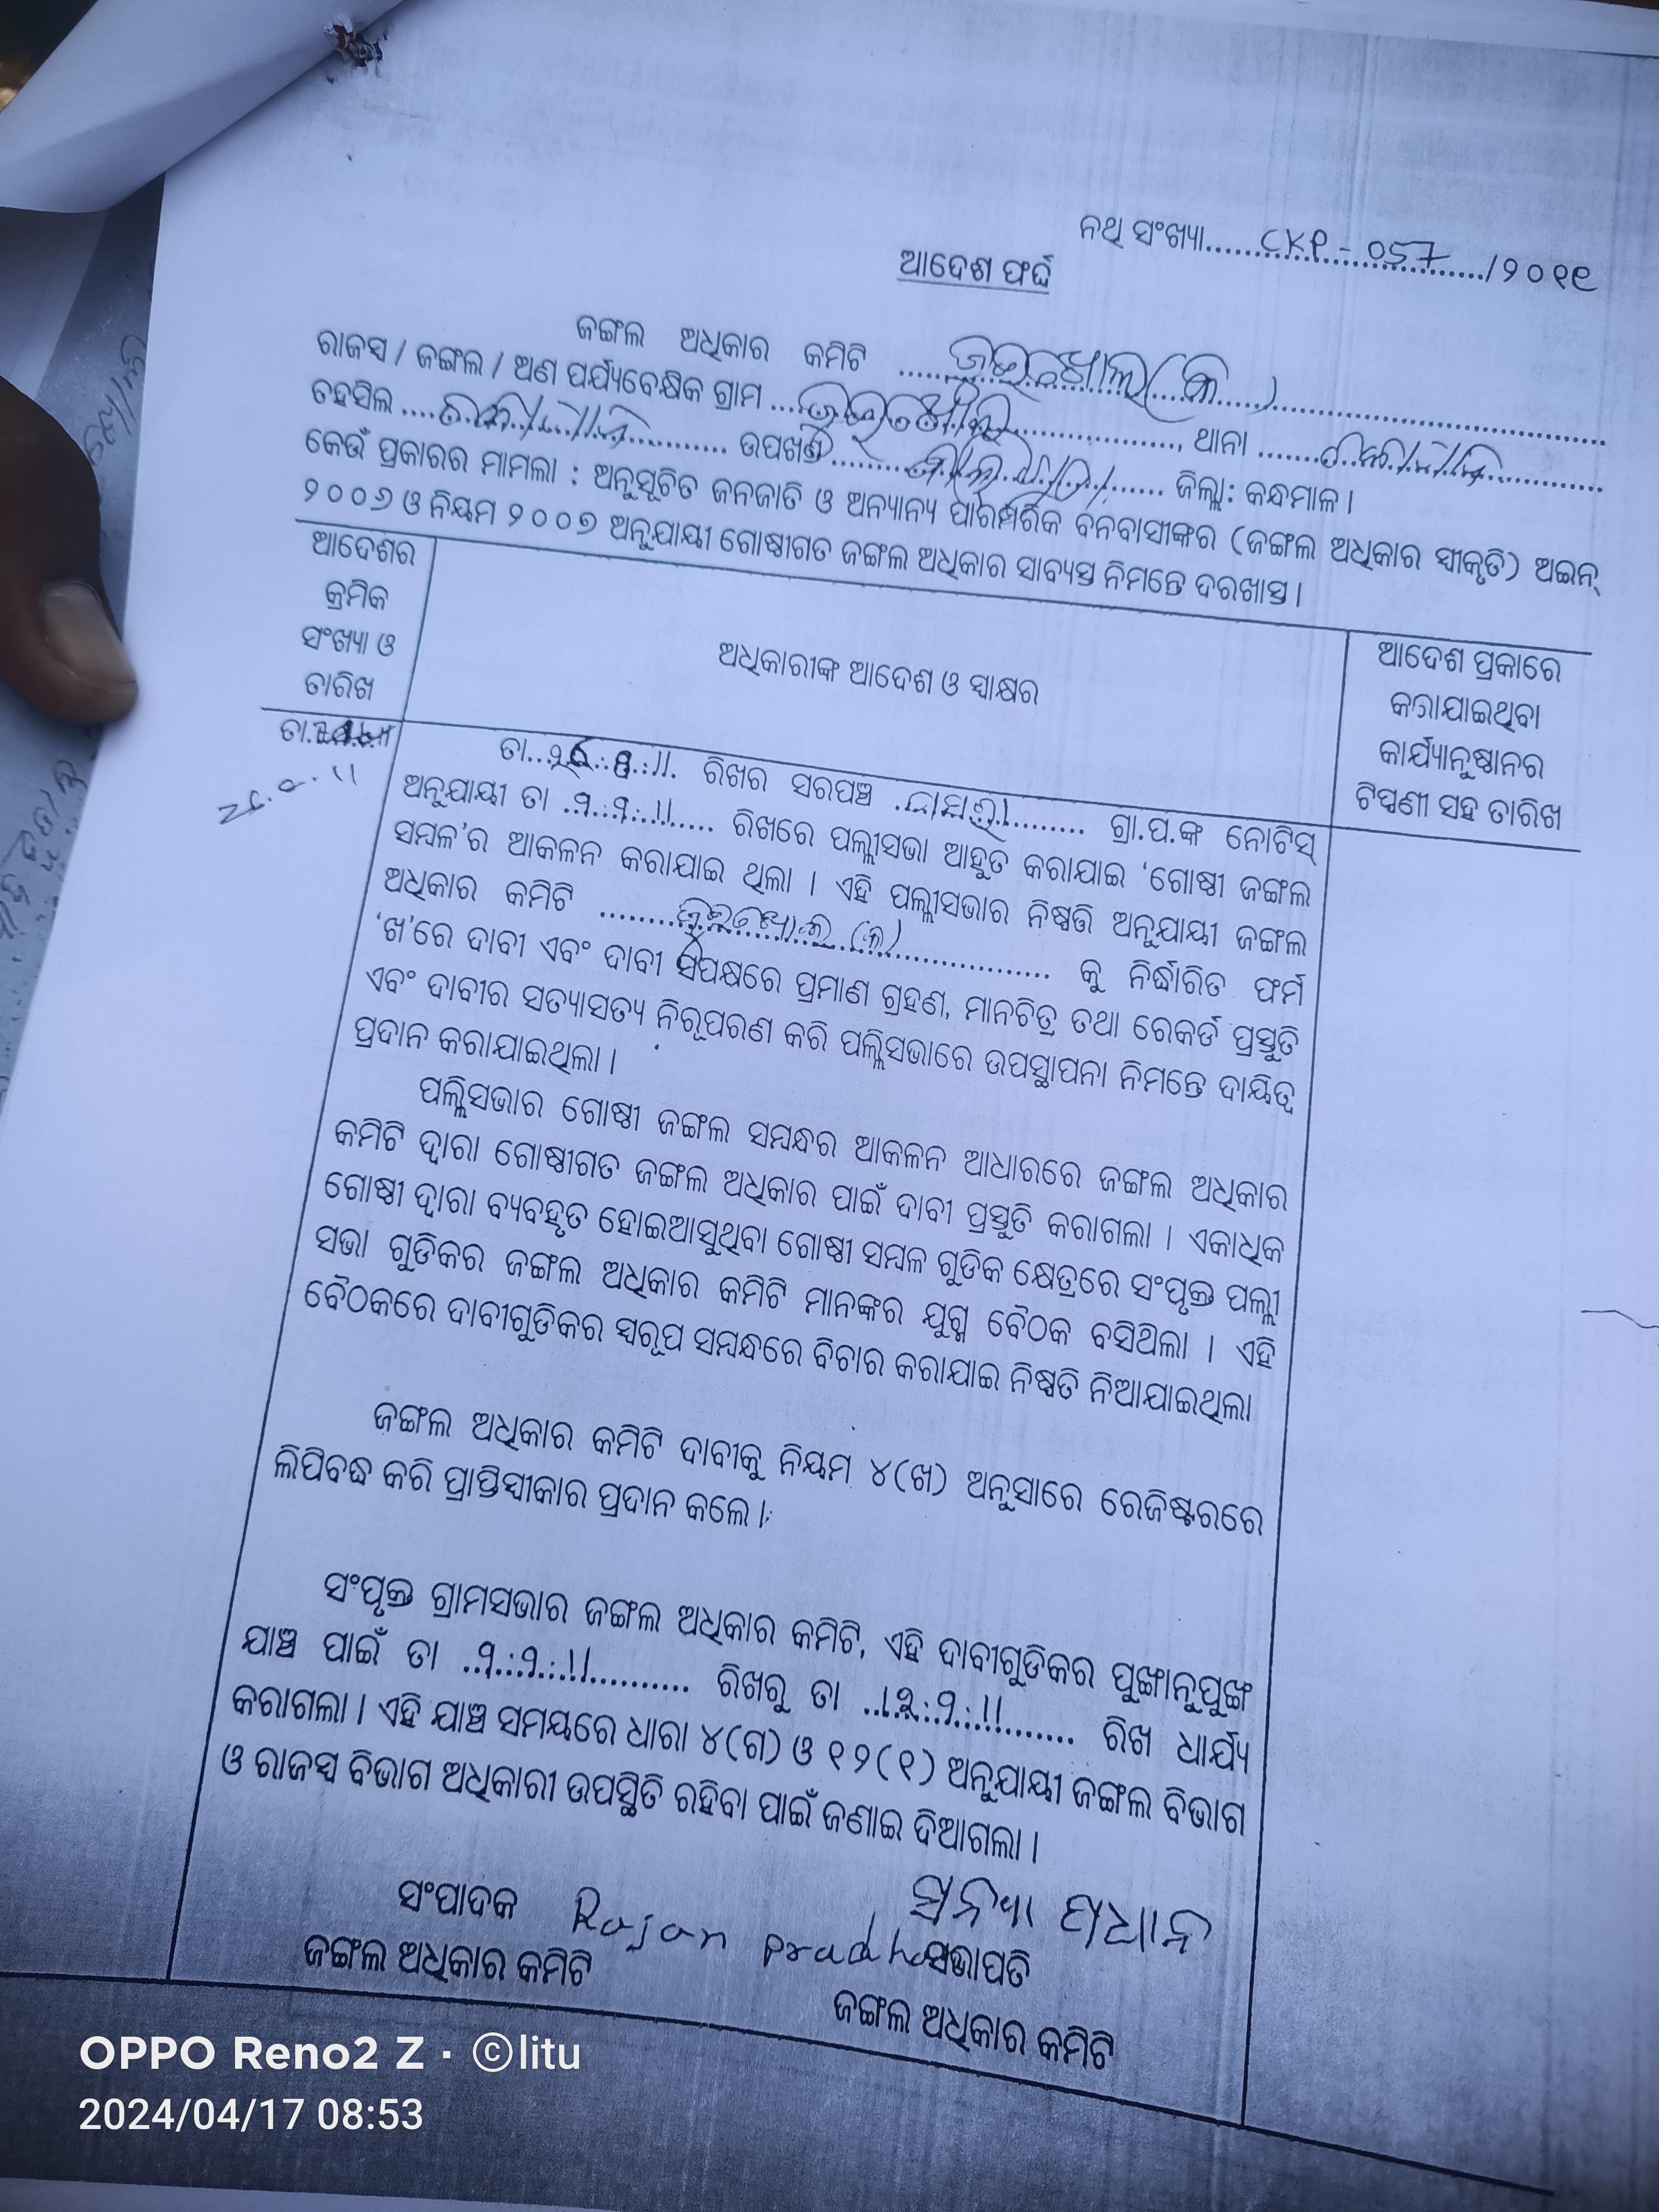 ନଥି ସଂଖ୍ୟା......CKP - 057....../୨୦୧୧
ଆଦେଶ ଫର୍ଦ୍ଦ
ଜଙ୍ଗଲ ଅଧିକାର କମିଟି
ରାଜସ୍ବ / ଜଙ୍ଗଲ / ଅଣ ପର୍ଯ୍ୟବେକ୍ଷିକ ଗ୍ରାମ ...................., ଥାନା
ତହସିଲ .................... ଉପଖଣ୍ଡ .................... ଜିଲ୍ଲା: କନ୍ଧମାଳ ।
କେଉଁ ପ୍ରକାରର ମାମଲା : ଅନୁସୂଚିତ ଜନଜାତି ଓ ଅନ୍ୟାନ୍ୟ ପାରମ୍ପରିକ ବନବାସୀଙ୍କର (ଜଙ୍ଗଲ ଅଧିକାର ସ୍ୱୀକୃତି) ଅଇନ୍
୨୦୦୬ ଓ ନିୟମ ୨୦୦୭ ଅନୁଯାୟୀ ଗୋଷ୍ଠୀଗତ ଜଙ୍ଗଲ ଅଧିକାର ସାବ୍ୟସ୍ତ ନିମନ୍ତେ ଦରଖାସ୍ତ ।
ଆଦେଶର
କ୍ରମିକ
ସଂଖ୍ୟା ଓ
ତାରିଖ
ଅଧିକାରୀଙ୍କ ଆଦେଶ ଓ ସ୍ୱାକ୍ଷର
ଆଦେଶ ପ୍ରକାରେ
କରାଯାଇଥିବା
କାର୍ଯ୍ୟାନୁଷ୍ଠାନର
ଟିପ୍ପଣୀ ସହ ତାରିଖ
ତା.
ତା.................... ରିଖର ସରପଞ୍ଚ .................... ଗ୍ରା.ପ.ଙ୍କ ନୋଟିସ୍
ଅନୁଯାୟୀ ତା ..୨.୨.11...... ରିଖରେ ପଲ୍ଲୀସଭା ଆହୁତ କରାଯାଇ ‘ଗୋଷ୍ଠୀ ଜଙ୍ଗଲ
ସମ୍ବଳ’ର ଆକଳନ କରାଯାଇ ଥିଲା । ଏହି ପଲ୍ଲୀସଭାର ନିଷ୍ପତ୍ତି ଅନୁଯାୟୀ ଜଙ୍ଗଲ
ଅଧିକାର କମିଟି .................... କୁ ନିର୍ଦ୍ଧାରିତ ଫର୍ମ
‘ଖ’ରେ ଦାବୀ ଏବଂ ଦାବୀ ସପକ୍ଷରେ ପ୍ରମାଣ ଗ୍ରହଣ, ମାନଚିତ୍ର ତଥା ରେକର୍ଡ ପ୍ରସ୍ତୁତି
ଏବଂ ଦାବୀର ସତ୍ୟାସତ୍ୟ ନିରୂପରଣ କରି ପଲ୍ଲିସଭାରେ ଉପସ୍ଥାପନା ନିମନ୍ତେ ଦାୟିତ୍ୱ
ପ୍ରଦାନ କରାଯାଇଥିଲା ।
ପଲ୍ଲିସଭାର ଗୋଷ୍ଠୀ ଜଙ୍ଗଲ ସମ୍ବନ୍ଧର ଆକଳନ ଆଧାରରେ ଜଙ୍ଗଲ ଅଧିକାର
କମିଟି ଦ୍ୱାରା ଗୋଷ୍ଠୀଗତ ଜଙ୍ଗଲ ଅଧିକାର ପାଇଁ ଦାବୀ ପ୍ରସ୍ତୁତି କରାଗଲା । ଏକାଧିକ
ଗୋଷ୍ଠୀ ଦ୍ୱାରା ବ୍ୟବହୃତ ହୋଇଆସୁଥିବା ଗୋଷ୍ଠୀ ସମ୍ବଳ ଗୁଡିକ କ୍ଷେତ୍ରରେ ସଂପୃକ୍ତ ପଲ୍ଲୀ
ସଭା ଗୁଡିକର ଜଙ୍ଗଲ ଅଧିକାର କମିଟି ମାନଙ୍କର ଯୁଗ୍ମ ବୈଠକ ବସିଥିଲା । ଏହି
ବୈଠକରେ ଦାବୀଗୁଡିକର ସ୍ୱରୂପ ସମ୍ବନ୍ଧରେ ବିଚାର କରାଯାଇ ନିଷ୍ପତି ନିଆଯାଇଥିଲା
ଜଙ୍ଗଲ ଅଧିକାର କମିଟି ଦାବୀକୁ ନିୟମ ୪(ଖ) ଅନୁସାରେ ରେଜିଷ୍ଟରରେ
ଲିପିବଦ୍ଧ କରି ପ୍ରାପ୍ତିସ୍ୱୀକାର ପ୍ରଦାନ କଲେ ।
ସଂପୃକ୍ତ ଗ୍ରାମସଭାର ଜଙ୍ଗଲ ଅଧିକାର କମିଟି, ଏହି ଦାବୀଗୁଡିକର ପୁଙ୍ଖାନୁପୁଙ୍ଖ
ଯାଞ୍ଚ ପାଇଁ ତା ..୨.୨.11...... ରିଖରୁ ତା ..1୨.୨.11...... ରିଖ ଧାର୍ଯ୍ୟ
କରାଗଲା । ଏହି ଯାଞ୍ଚ ସମୟରେ ଧାରା ୪(ଗ) ଓ ୧୨(୧) ଅନୁଯାୟୀ ଜଙ୍ଗଲ ବିଭାଗ
ଓ ରାଜସ୍ୱ ବିଭାଗ ଅଧିକାରୀ ଉପସ୍ଥିତି ରହିବା ପାଇଁ ଜଣାଇ ଦିଆଗଲା ।
ସଂପାଦକ Rajan pradhan
ଜଙ୍ଗଲ ଅଧିକାର କମିଟି
ପ୍ରଧାନ
ସଭାପତି
ଜଙ୍ଗଲ ଅଧିକାର କମିଟି
OPPO Reno2 Z · ©litu
2024/04/17 08:53